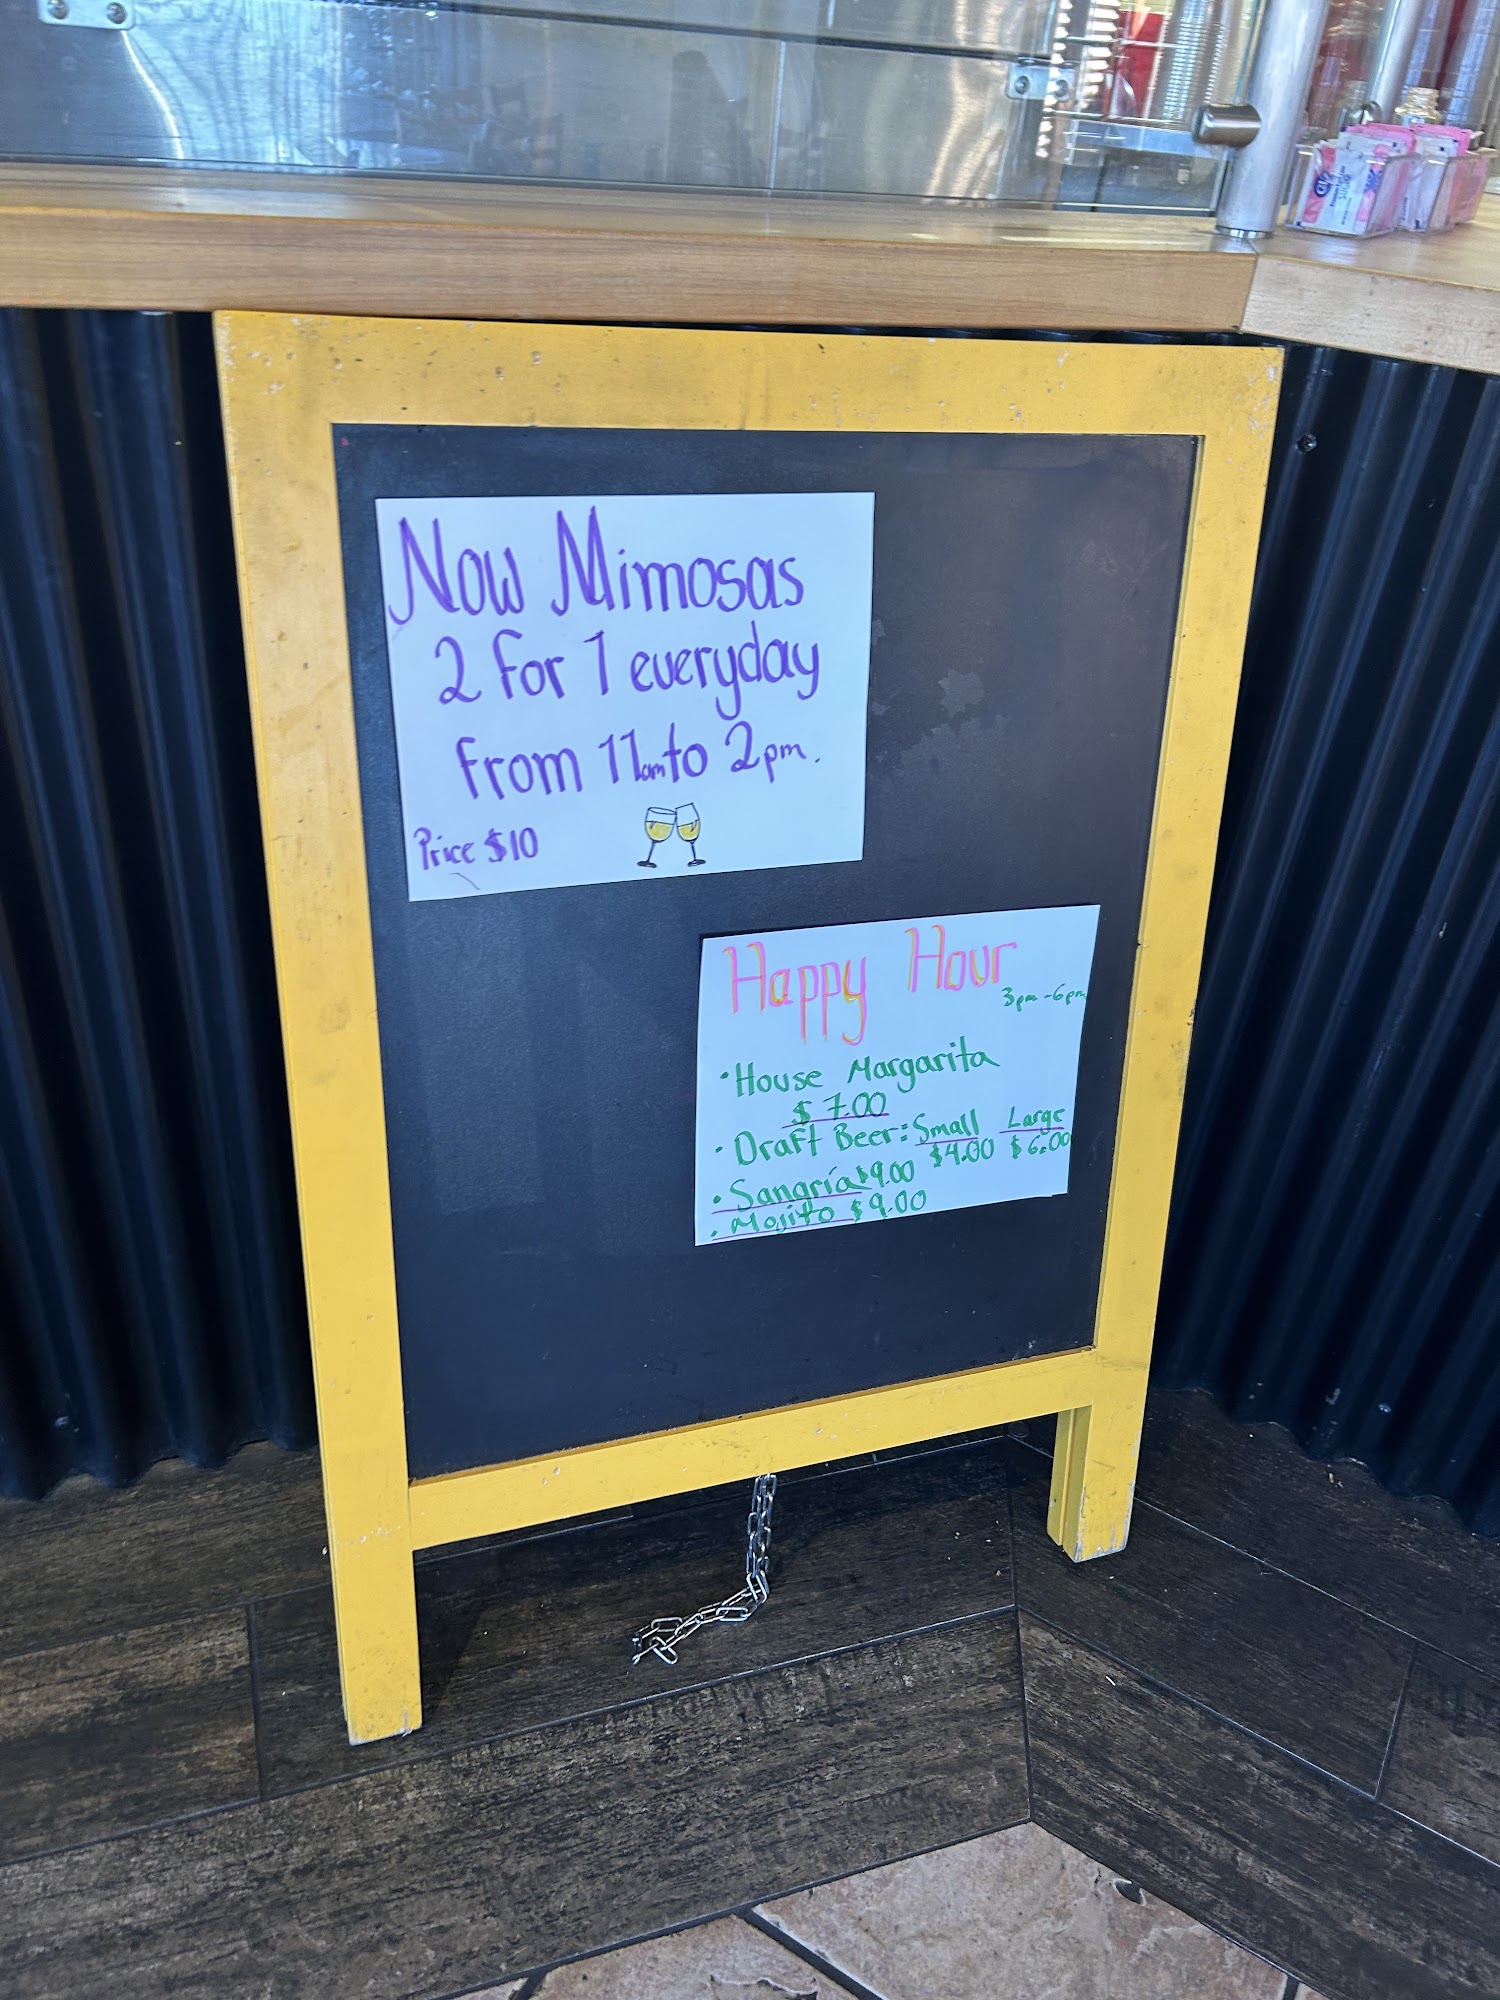 Now Mimosas
2 for 1 everyday
from 11am to 2pm.
Price $10
Happy Hour
3pm-6pm
• House Margarita
$7.00
• Draft Beer: Small Large
$4.00 $6.00
• Sangría $9.00
• Mojito $9.00